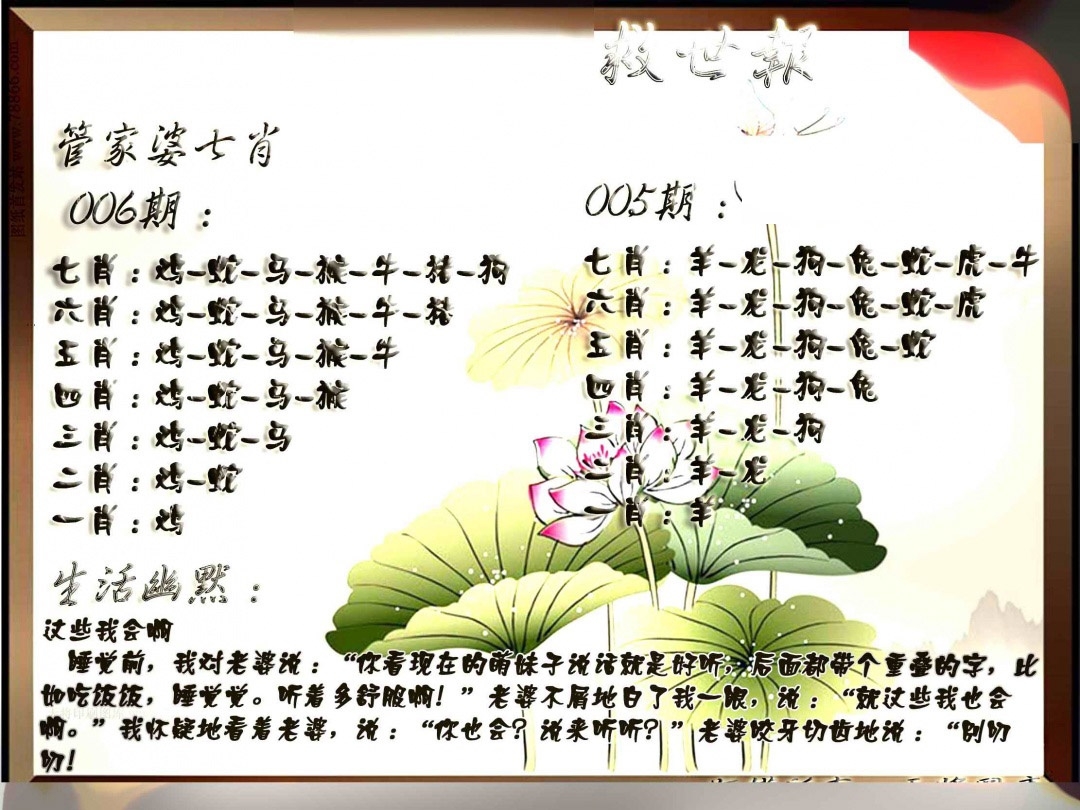 救世報
管家婆七肖
006期：
七肖：鸡-蛇-马-猴-牛-猪-狗
六肖：鸡-蛇-马-猴-牛-猪
五肖：鸡-蛇-马-猴-牛
四肖：鸡-蛇-马-猴
三肖：鸡-蛇-马
二肖：鸡-蛇
一肖：鸡
005期：
七肖：羊-龙-狗-兔-蛇-虎-牛
六肖：羊-龙-狗-兔-蛇-虎
五肖：羊-龙-狗-兔-蛇
四肖：羊-龙-狗-兔
三肖：羊-龙-狗
二肖：羊-龙
一肖：羊
生活幽默：
这些我会啊
睡觉前，我对老婆说：“你看现在的萌妹子说话就是好听，后面都带个重叠的字，比
如吃饭饭，睡觉觉。听着多舒服啊！”老婆不屑地白了我一眼，说：“就这些我也会
啊。”我怀疑地看着老婆，说：“你也会？说来听听？”老婆咬牙切齿地说：“别叨
叨！